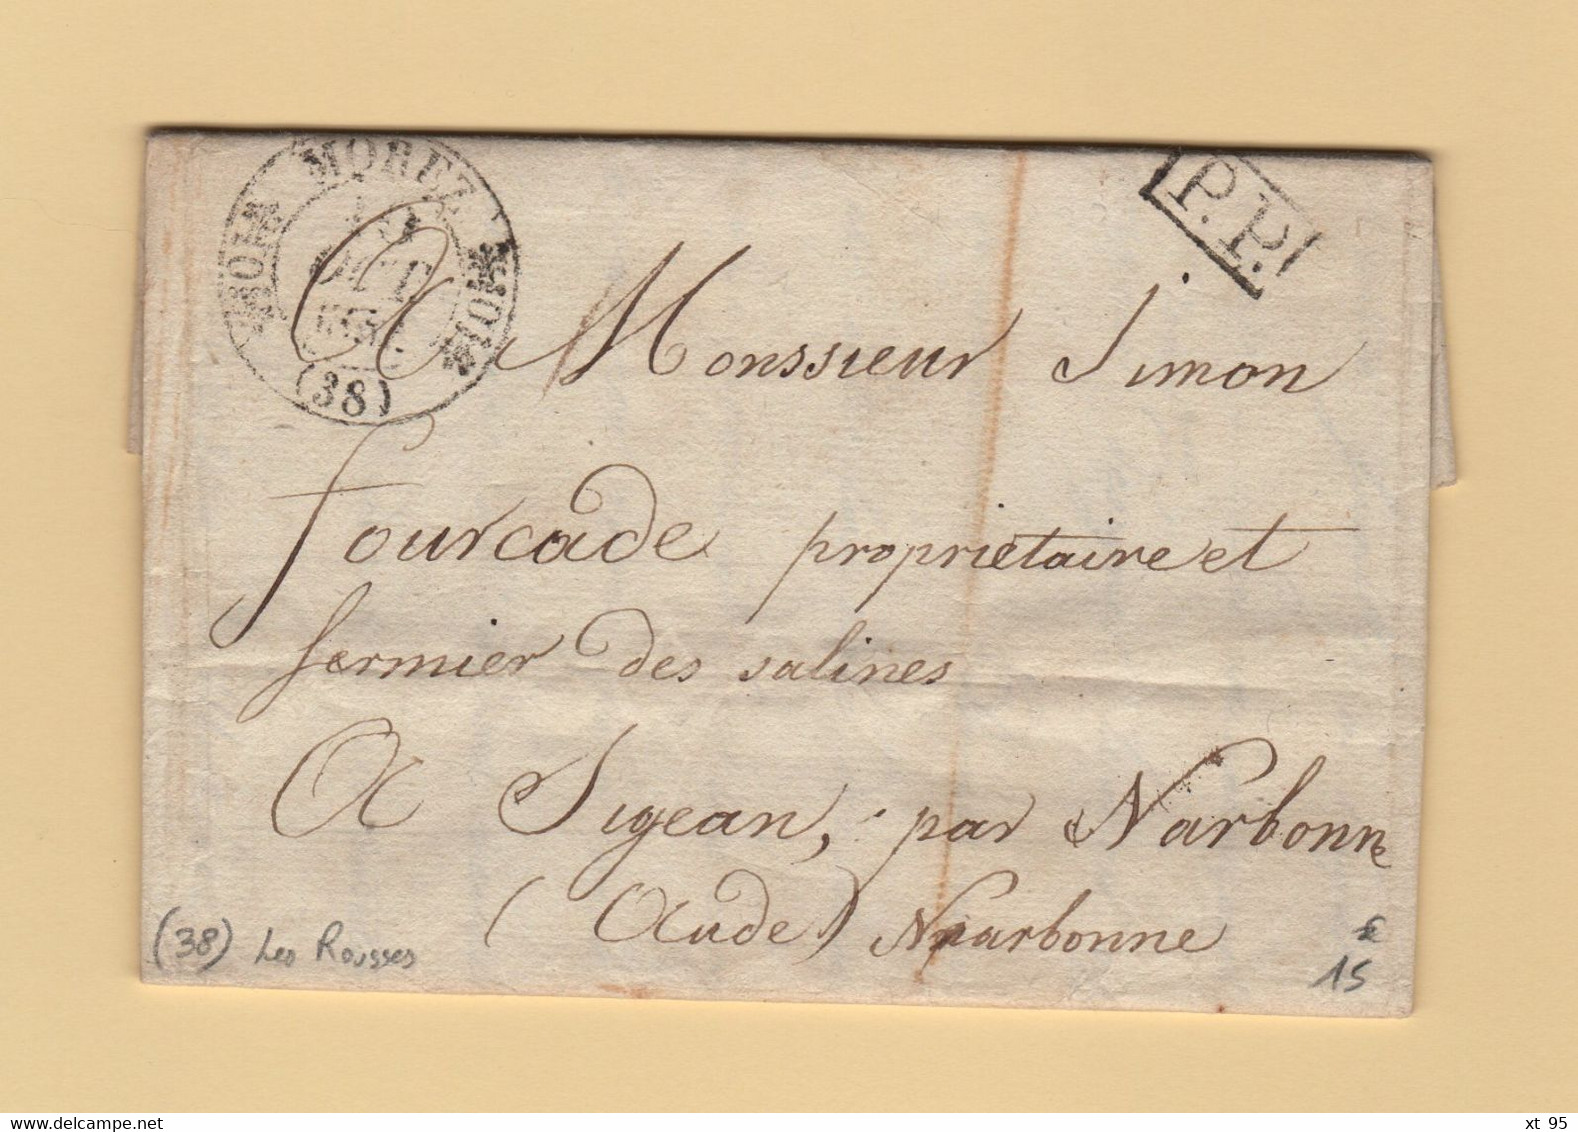 MOREZ
(38)
P.P.
A Monssieur Simon
fourcade propriétaire et
fermier des salines
A Sigean, par Narbonne
(Aude) Narbonne
(38) Les Rousses
€
15
xt 95